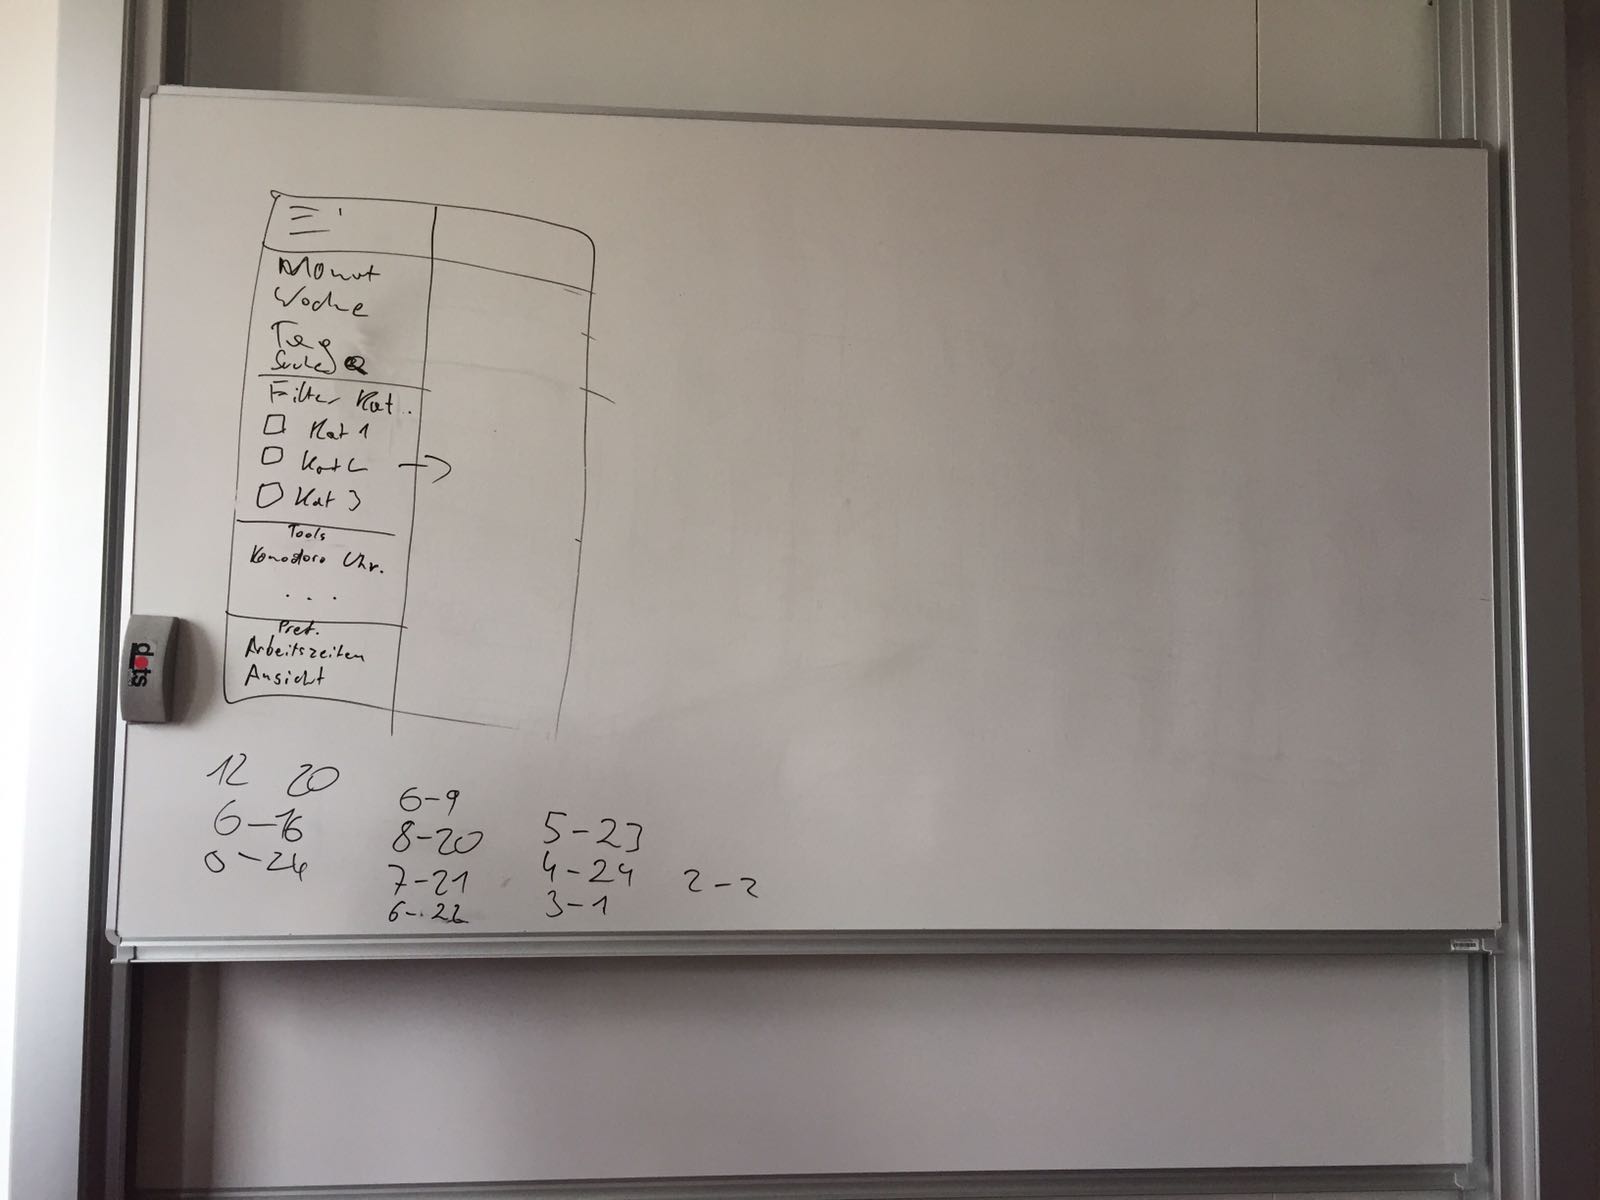 Monat
Woche
Tag
Suche
Filter Kat..
Kat 1
Kat 2
Kat 3
Tools
Komodoro Uhr.
...
Pref.
Arbeitszeiten
Ansicht
dots
12 20
6-16
0-24
6-9
8-20
7-21
6-22
5-23
4-24
3-1
2-2